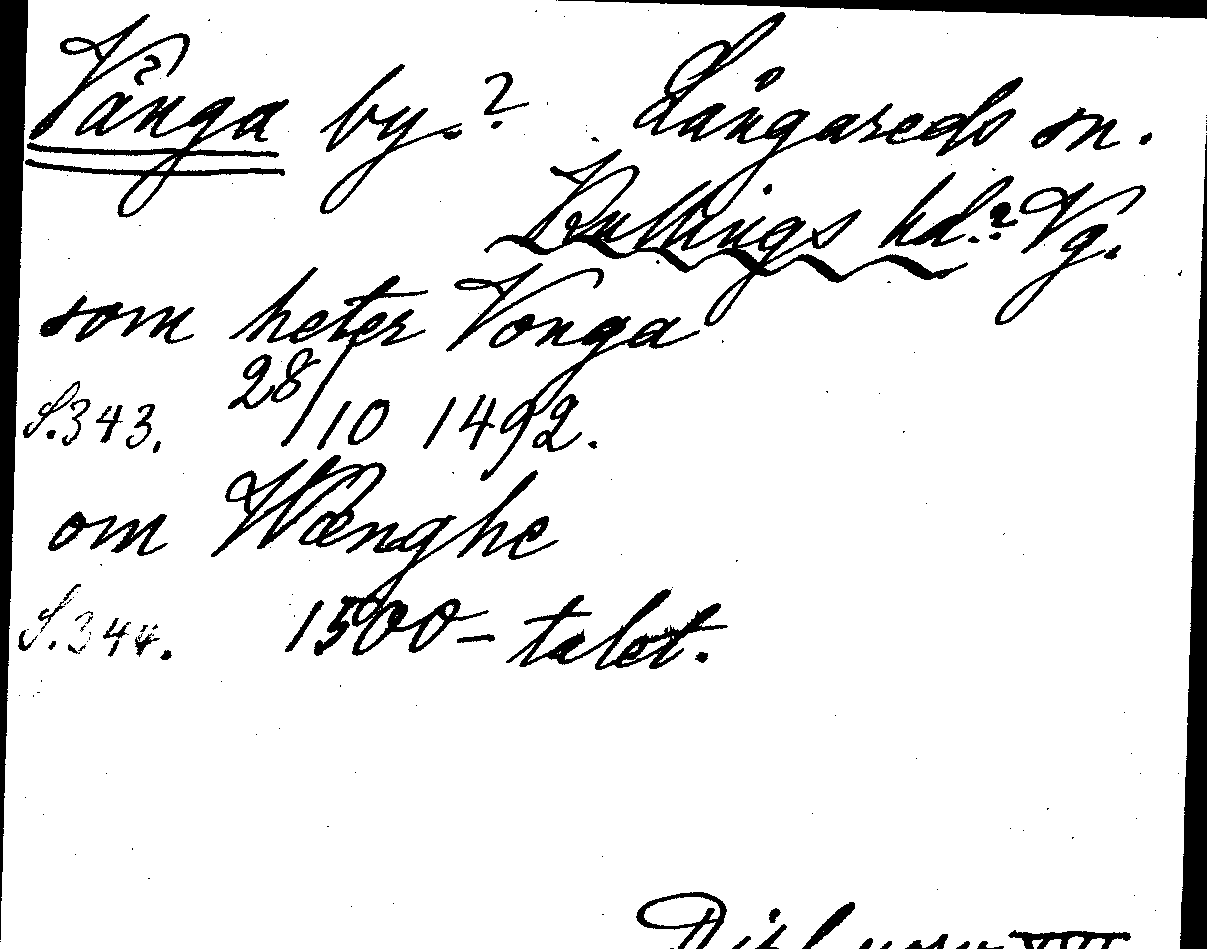 Vånga by.? Långareds sn.
Kullings hd.? Vg.
som heter Vonga
S.343. 28/10 1492.
om Wænghe
S.344. 1500-talet.
Dipl. norv. XVII